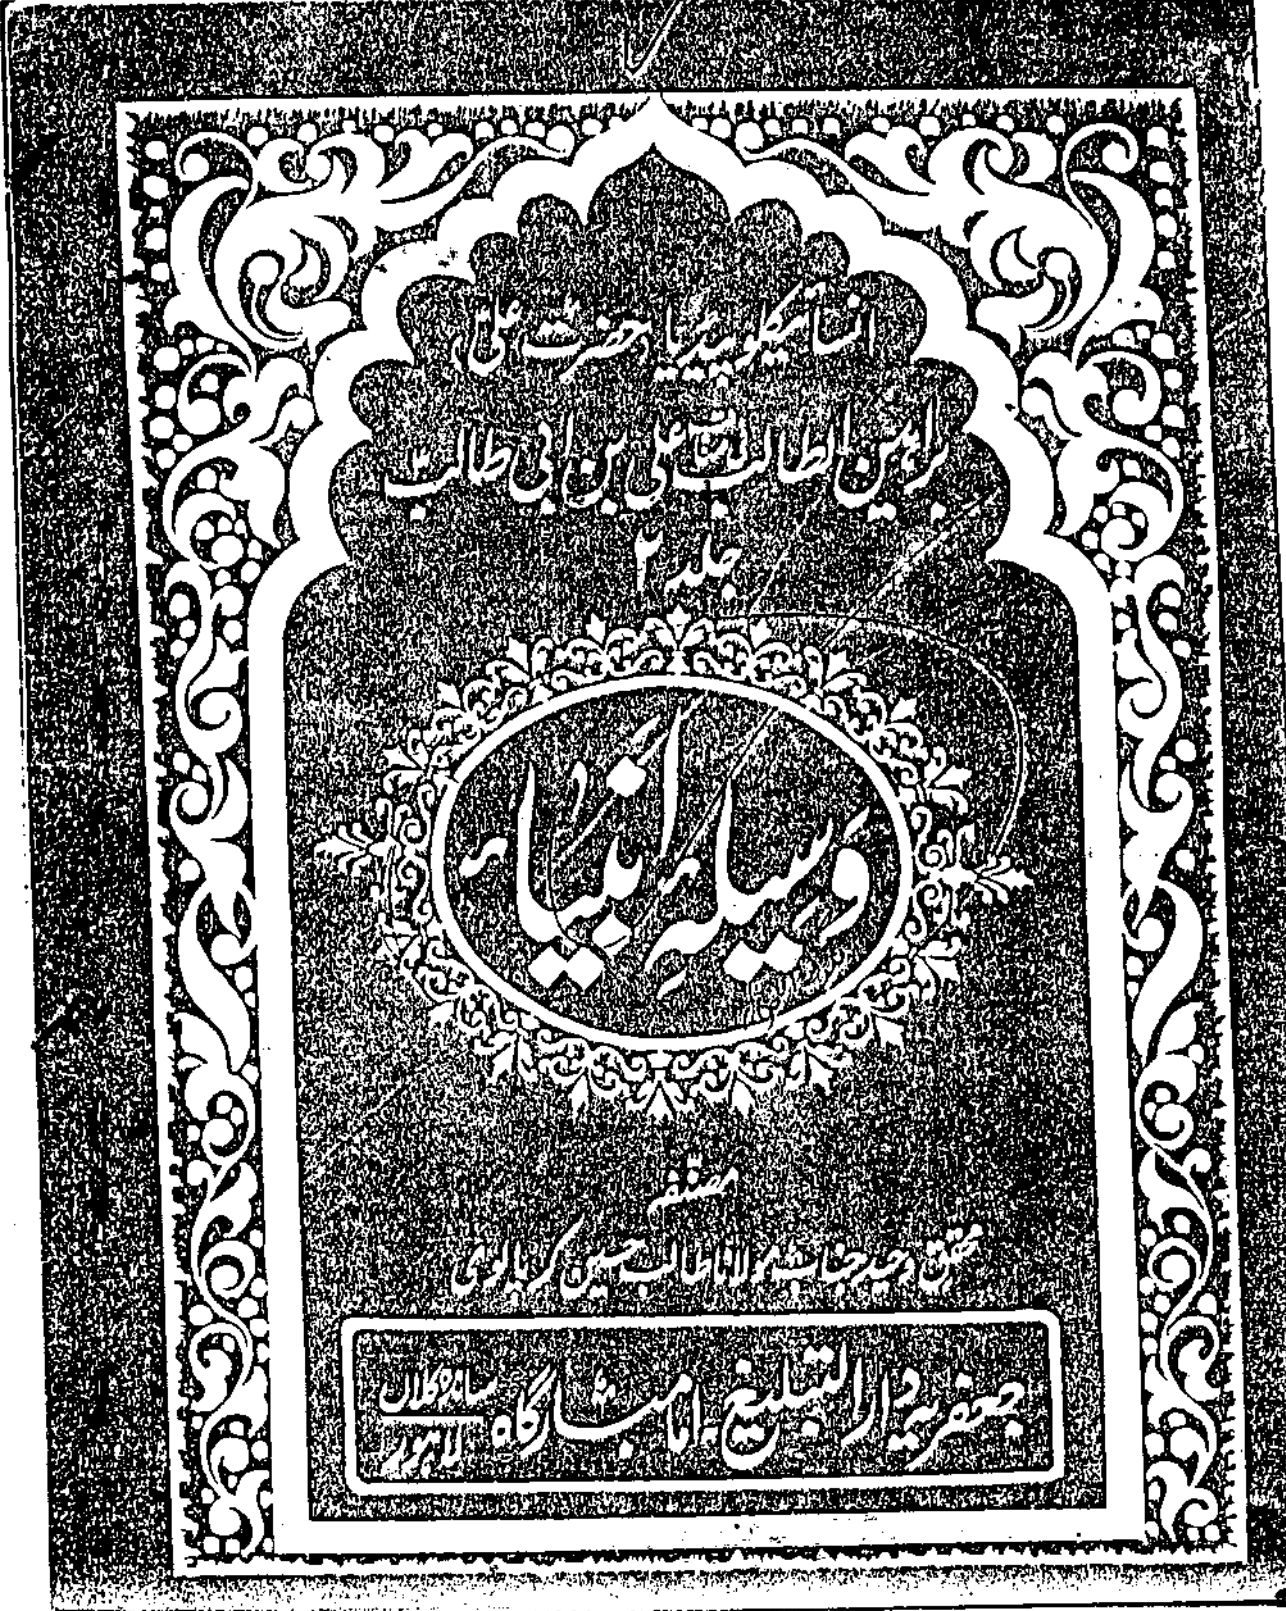 انسائیکلوپیڈیا حضرت علیؑ
براہین المطالب فی مناقب علی بن ابی طالبؑ
جلد ۲
وَسِیلۂِ اَنبیَاء
مصنفہ
محقق وحید جناب مولانا طالب حسین کرپالوی
جعفریہ دار التبلیغ ۔ امامبارگاہ
ساندہ کلاں
لاہور